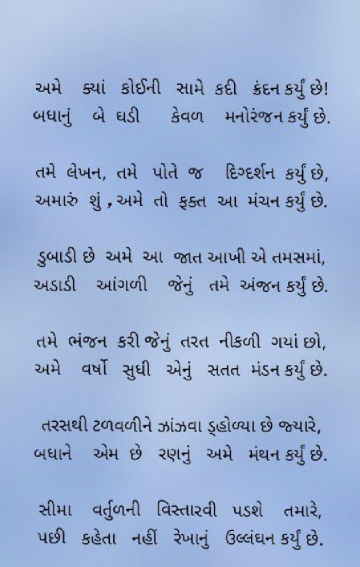 અમે ક્યાં કોઈની સામે કદી ક્રંદન કર્યું છે!
બધાનું બે ઘડી કેવળ મનોરંજન કર્યું છે.
તમે લેખન, તમે પોતે જ દિગ્દર્શન કર્યું છે,
અમારું શું , અમે તો ફક્ત આ મંચન કર્યું છે.
ડુબાડી છે અમે આ જાત આખી એ તમસમાં,
અડાડી આંગળી જેનું તમે અંજન કર્યું છે.
તમે ભંજન કરી જેનું તરત નીકળી ગયાં છો,
અમે વર્ષો સુધી એનું સતત મંડન કર્યું છે.
તરસથી ટળવળીને ઝાંઝવા ડ્હોળ્યા છે જ્યારે,
બધાને એમ છે રણનું અમે મંથન કર્યું છે.
સીમા વર્તુળની વિસ્તારવી પડશે તમારે,
પછી કહેતા નહીં રેખાનું ઉલ્લંઘન કર્યું છે.